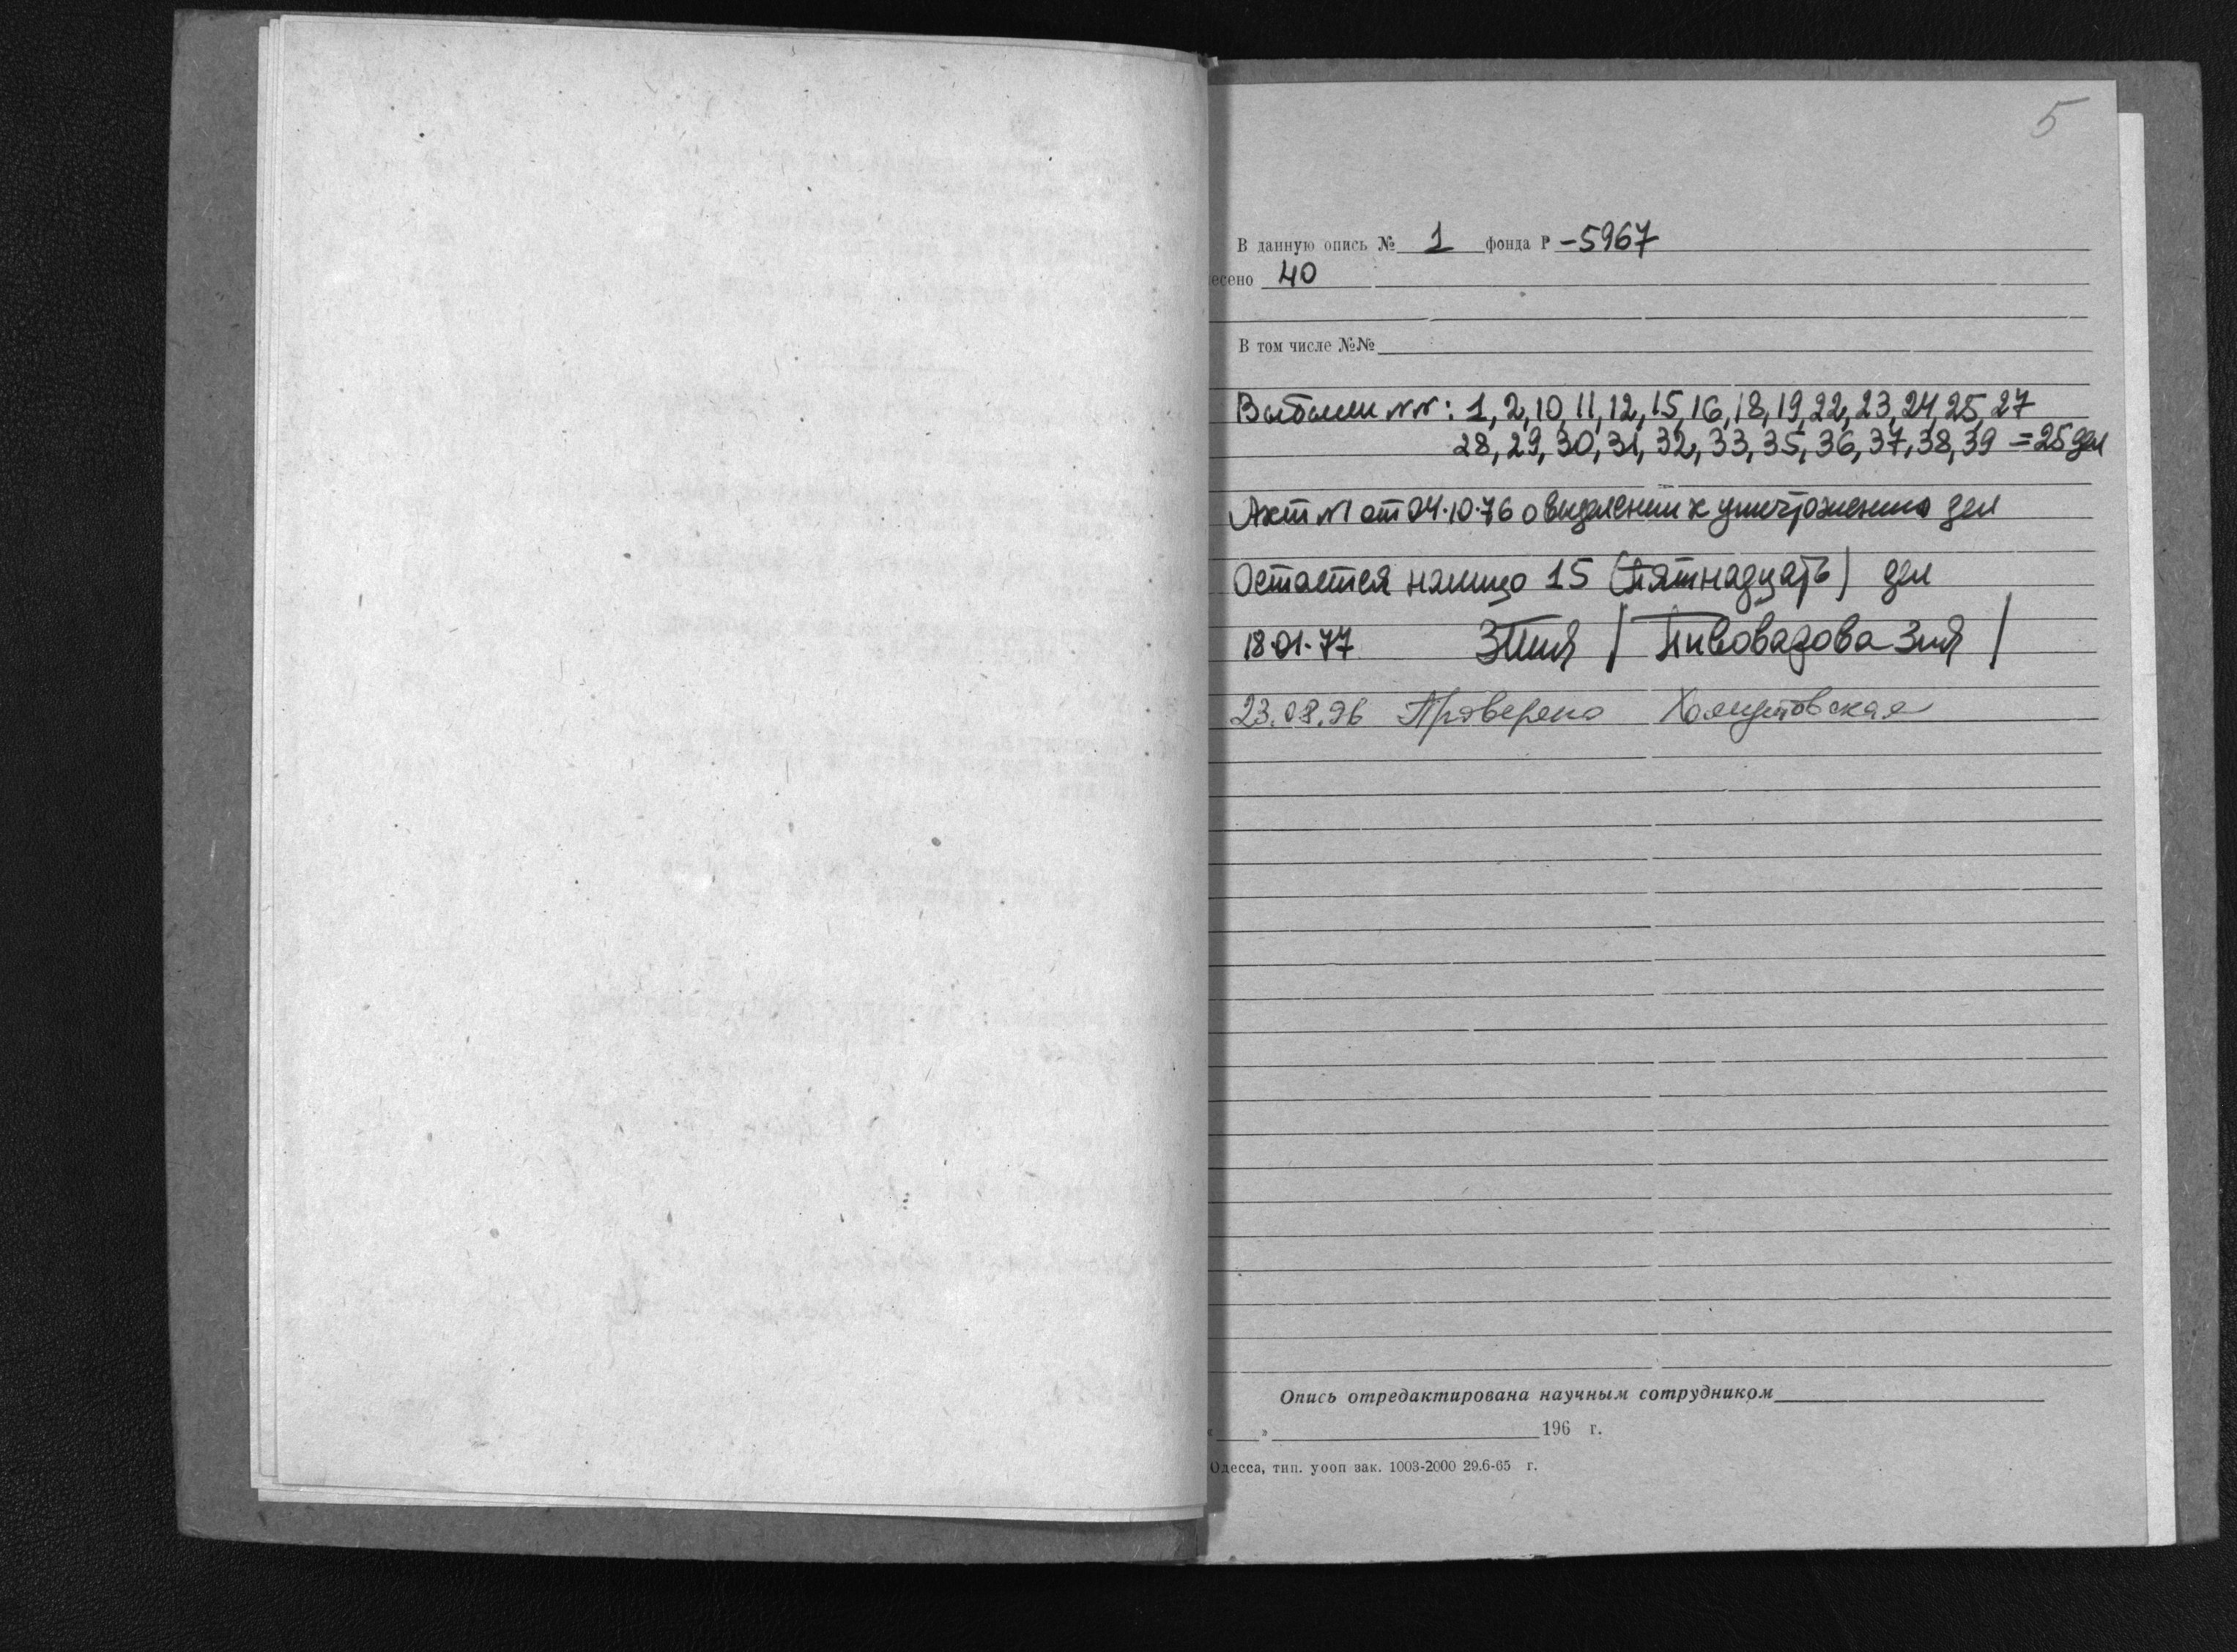 5
В данную опись № 1 фонда Р -5967
есено 40
В том числе №№
Выбыли №№: 1, 2, 10, 11, 12, 15, 16, 18, 19, 22, 23, 24, 25, 27
28, 29, 30, 31, 32, 33, 35, 36, 37, 38, 39 = 25 дел
Акт №1 от 04.10.76 о выделении к уничтожению дел
Остается налицо 15 (пятнадцать) дел
18.01.77 / Пивоварова /
23.08.96 Проверено
Опись отредактирована научным сотрудником
« » 196 г.
Одесса, тип. уооп зак. 1003-2000 29.6-65 г.